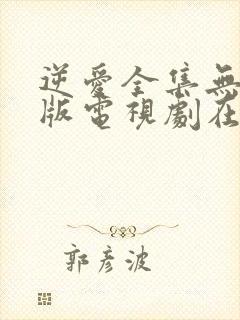 逆愛全集無
版電視劇在
郭彥波